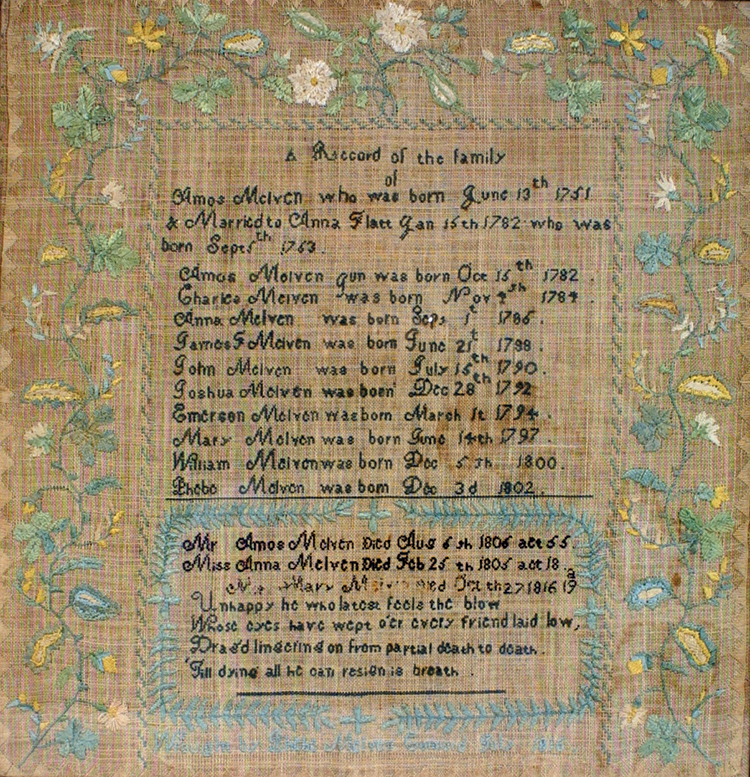 A Reccord of the family
of
Amos Melven who was born June 13th 1751
& Married to Anna Flatt Jan 15th 1782 who was
born Sept 5th 1763.
Amos Melven Jun was born Oct 15th 1782.
Charles Melven was born Nov 4th 1784.
Anna Melven was born Sept 1t 1786.
James F Melven was born June 21t 1788
John Melven was born July 15th 1790.
Joshua Melven was born Dec 28th 1792
Emerson Melven was born March 1t 1794.
Mary Melven was born June 14th 1797.
William Melven was born Dec 5th 1800.
Phebe Melven was born Dec 3d 1802.
Mr Amos Melven Died Aug 6th 1806 aet 55.
Miss Anna Melven Died Feb 25th 1805 aet 18
Mary Melven Died Oct th 27 1816 19
Unhappy he who latest feels the blow
Whose eyes have wept o'er every friend laid low,
Drag'd lingering on from partial death to death.
Till dying all he can resign is breath.